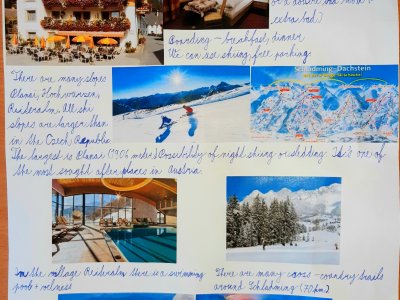 for 2 adults and more (+
extra bed)
Boarding - breakfast, dinner
We can use skiing, free parking.
There are many slopes
Planai, Hochwurzen,
Reiteralm. All ski
slopes are larger than
in the Czech Republic.
Schladming - Dachstein
The largest is Planai (1906 meters) Possibility of night skiing or sledding. This one of
the most sought after places in Austria.
In the village Reiteralm there is a swimming
pool + wellness
There are many cross-country trails
around Schladming (70km)